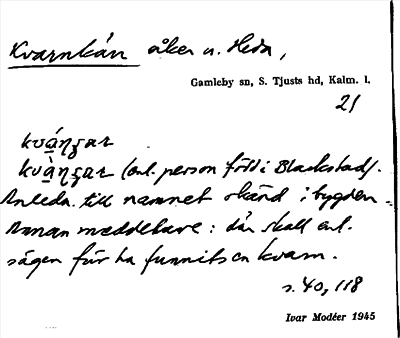 Kvarnkån åker u. Heda,
Gamleby sn, S. Tjusts hd, Kalm. l.
21
kváŋgar
kvàŋgar (enl. person född i Blackstad).
Anledn. till namnet okänd i bygden.
Annan meddelare: där skall enl.
sägen förr ha funnits en kvarn.
s. 40, 118
Ivar Modéer 1945